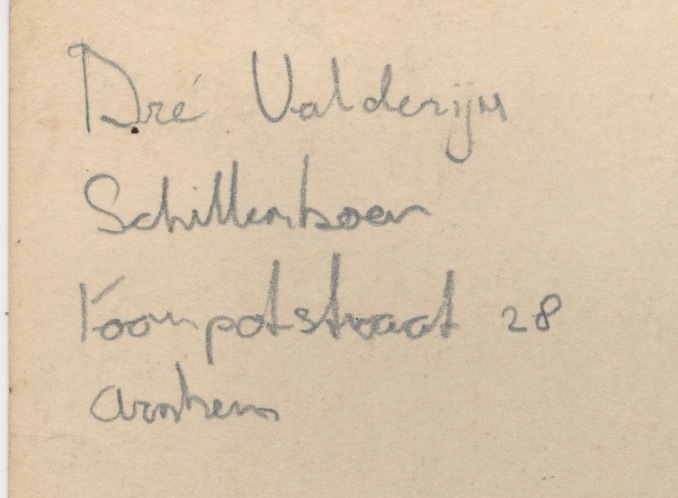 Dré Valderijn
Schillenboer
Foonpotstraat 28
Arnhem